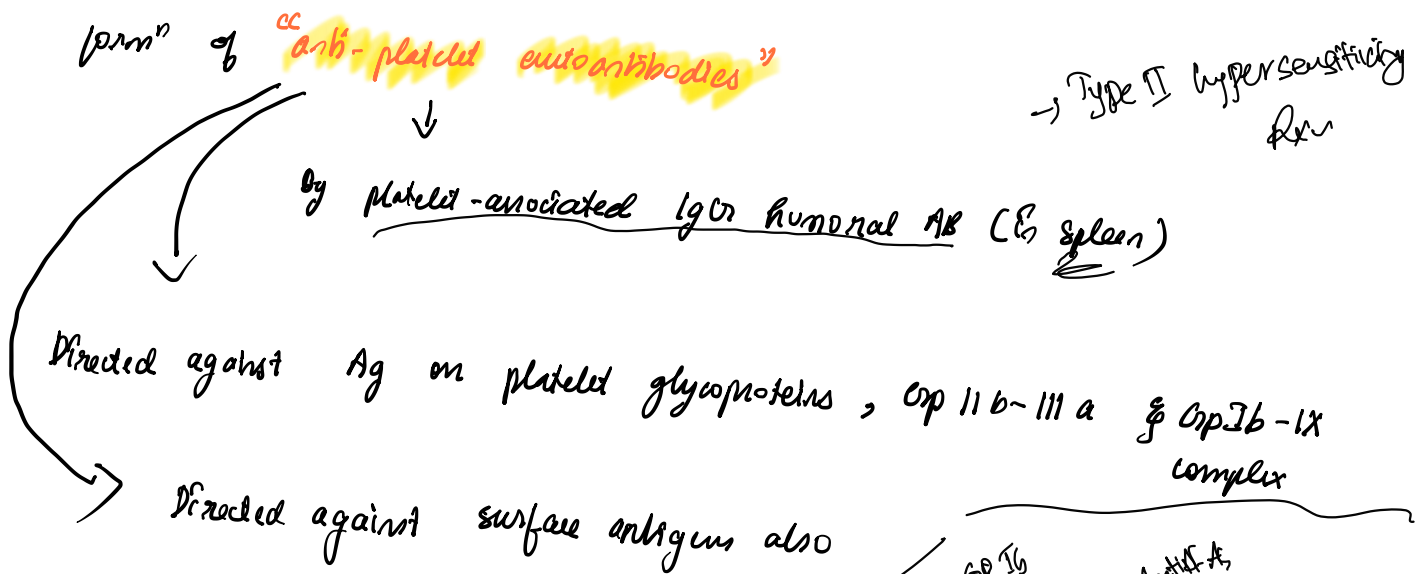 formⁿ of "anti-platelet autoantibodies"
→ Type II hypersensitivity
Rxn
By platelet-associated IgG humoral AB (In spleen)
Directed against Ag on platelet glycoproteins, Gp IIb-IIIa & Gp Ib-IX
complex
Directed against surface antigens also
Gp Ib